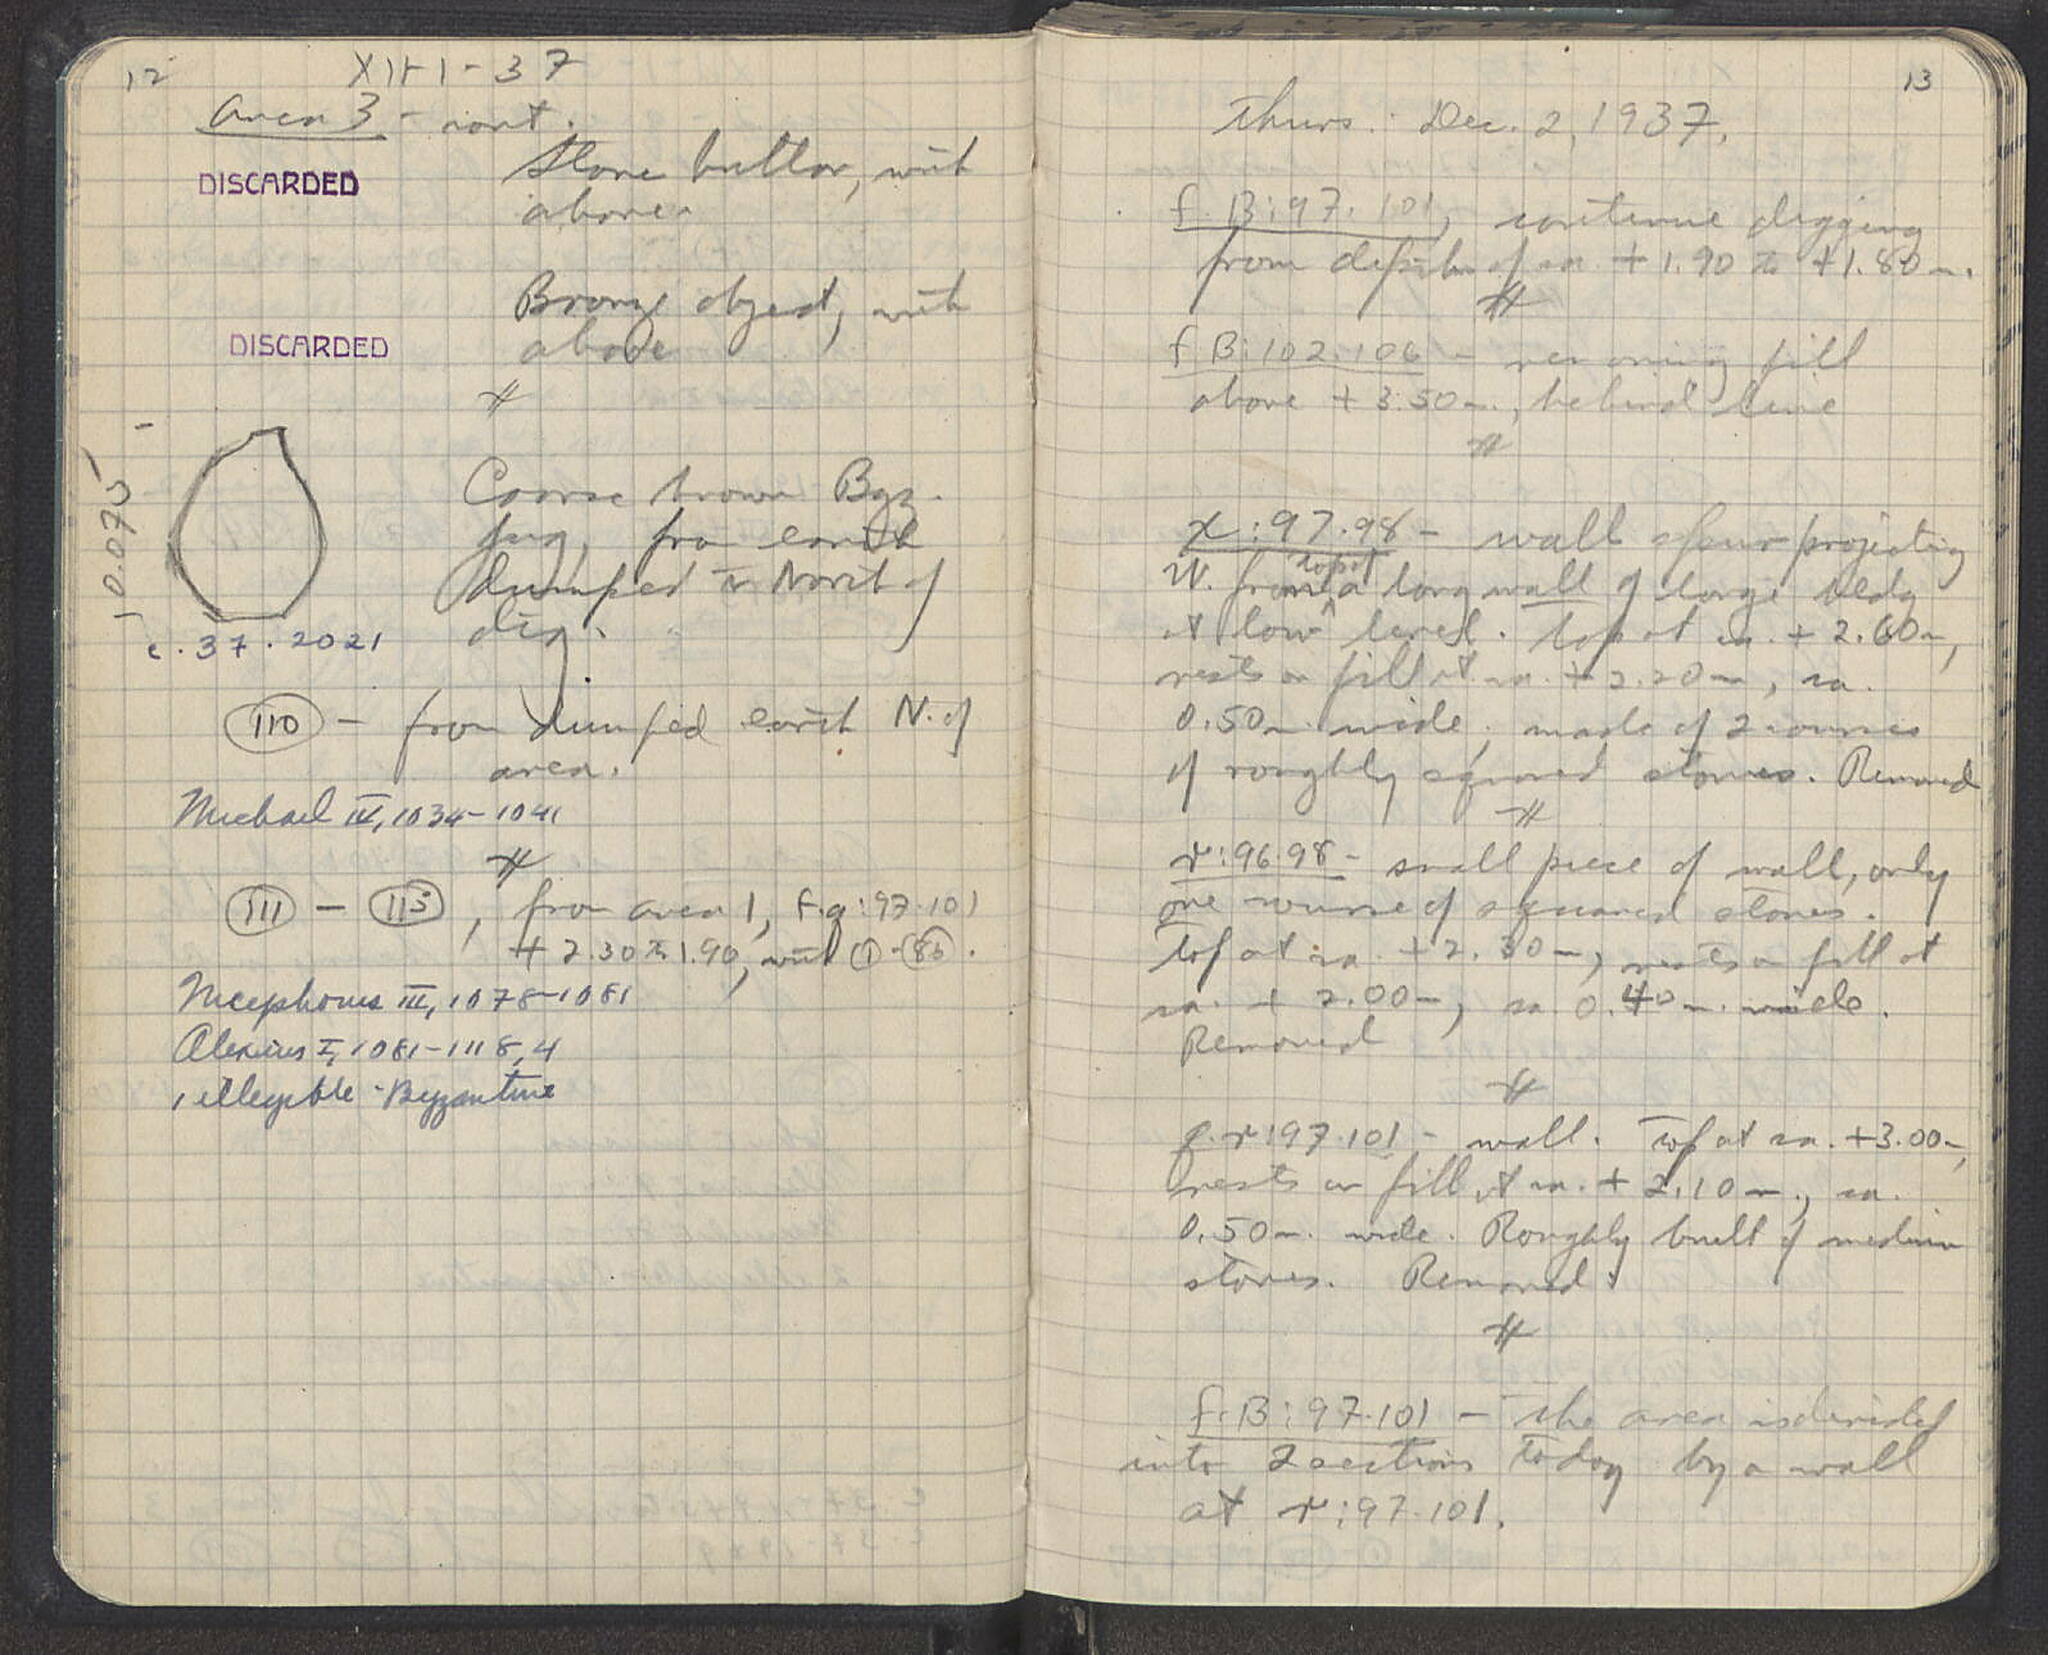 12
XII-1-37
Area 3 - cont.
DISCARDED
Stone button, with
above.
DISCARDED
Bronze object, with
above
0.075
Coarse brown Byz.
jug, from earth
dumped to North of
dig.
c.37.2021
110 - from dumped earth N. of
area.
Michael IV, 1034-1041
111 - 115, from area 1, f.g:97.101
+ 2.30 to 1.90, with 1 - 86.
Nicephorus III, 1078-1081
Alexius I, 1081-1118, 4
1 illegible - Byzantine
13
Thurs. Dec. 2, 1937.
f.B:97.101, continue digging
from depth of ca. +1.90 to +1.80m.
f.B:102.106 - removing fill
above +3.50m., behind line
x:97.98 - wall spur projecting
W. from top of a long wall of large bldg
at low level. Top at ca. +2.60m,
rests on fill at ca. +2.20m, ca.
0.50m. wide; made of 2 courses
of roughly squared stones. Removed
r:96.98 - small piece of wall, only
one course of squared stones.
Top at ca. +2.30m, rests on fill at
ca. +2.00m, ca. 0.40m. wide.
Removed
p.r:97.101 - wall. Top at ca. +3.00m,
rests on fill at ca. +2.10m., ca.
0.50m. wide. Roughly built of medium
stones. Removed.
f.B:97.101 - The area is divided
into 2 sections today by a wall
at r:97.101.